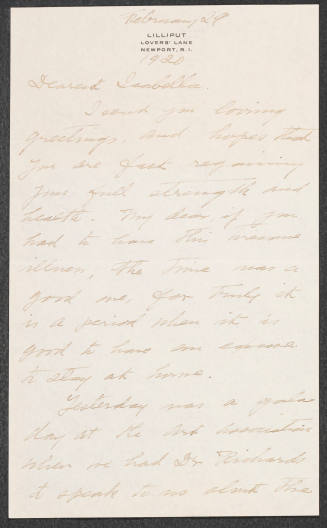 February 28
LILLIPUT
LOVERS' LANE
NEWPORT, R.I.
1920
Dearest Isabella.
I send you loving
greetings, and hopes that
you are fast regaining
your full strength and
health. My dear, if you
had to have this
illness, the time was a
good one, for truly it
is a period when it is
good to have an excuse
to stay at home.
Yesterday was a gala
day at the Art Association
when we had Dr Richards
speak to us about the